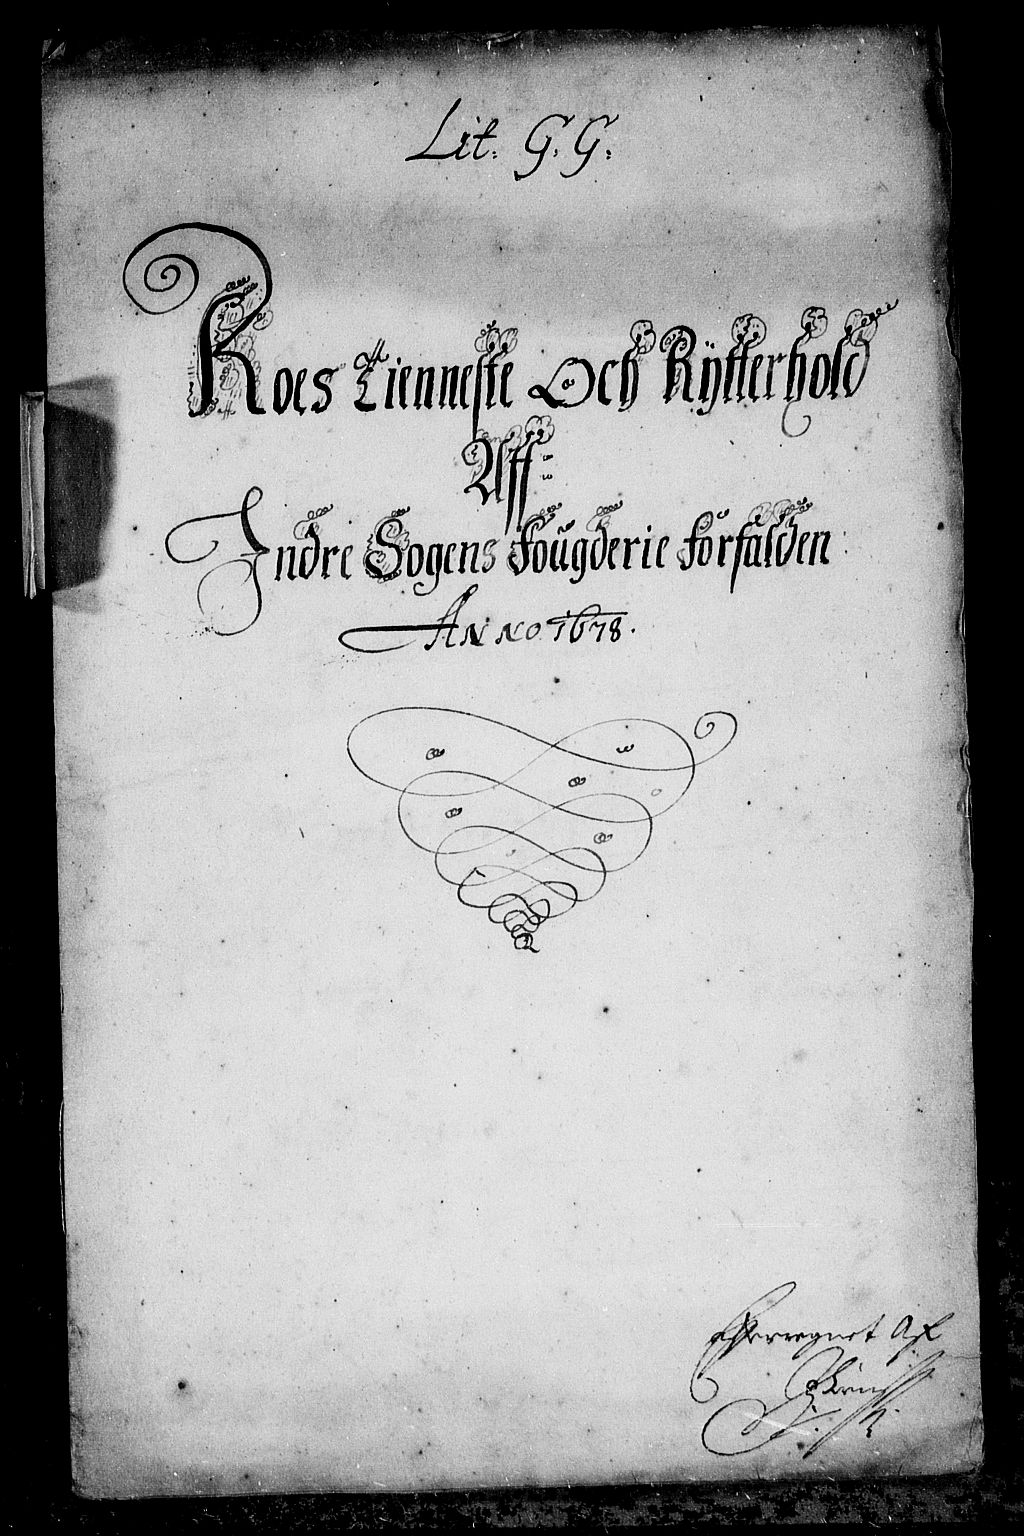 Lit. G. G.
Roes Tienneste Och Rÿtterhold
Aff
Indre Sogens Fougderie forfalden
Anno 1678.
Efterregnet Af